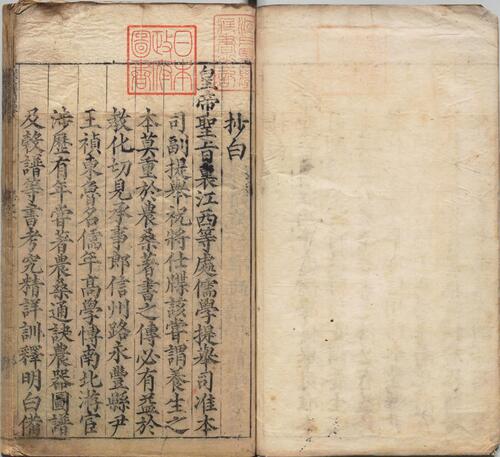 抄白
皇帝聖旨裏江西等處儒學提舉司准本
司副提舉祝將仕牒該嘗謂養生之
本莫重於農桑著書之傳必有益於
教化切見承事郎信州路永豐縣尹
王禎東魯名儒年高學博南北游宦
涉歷有年嘗著農桑通訣農器圖譜
及穀譜等書考究精詳訓釋明白備
日本
政府
圖書